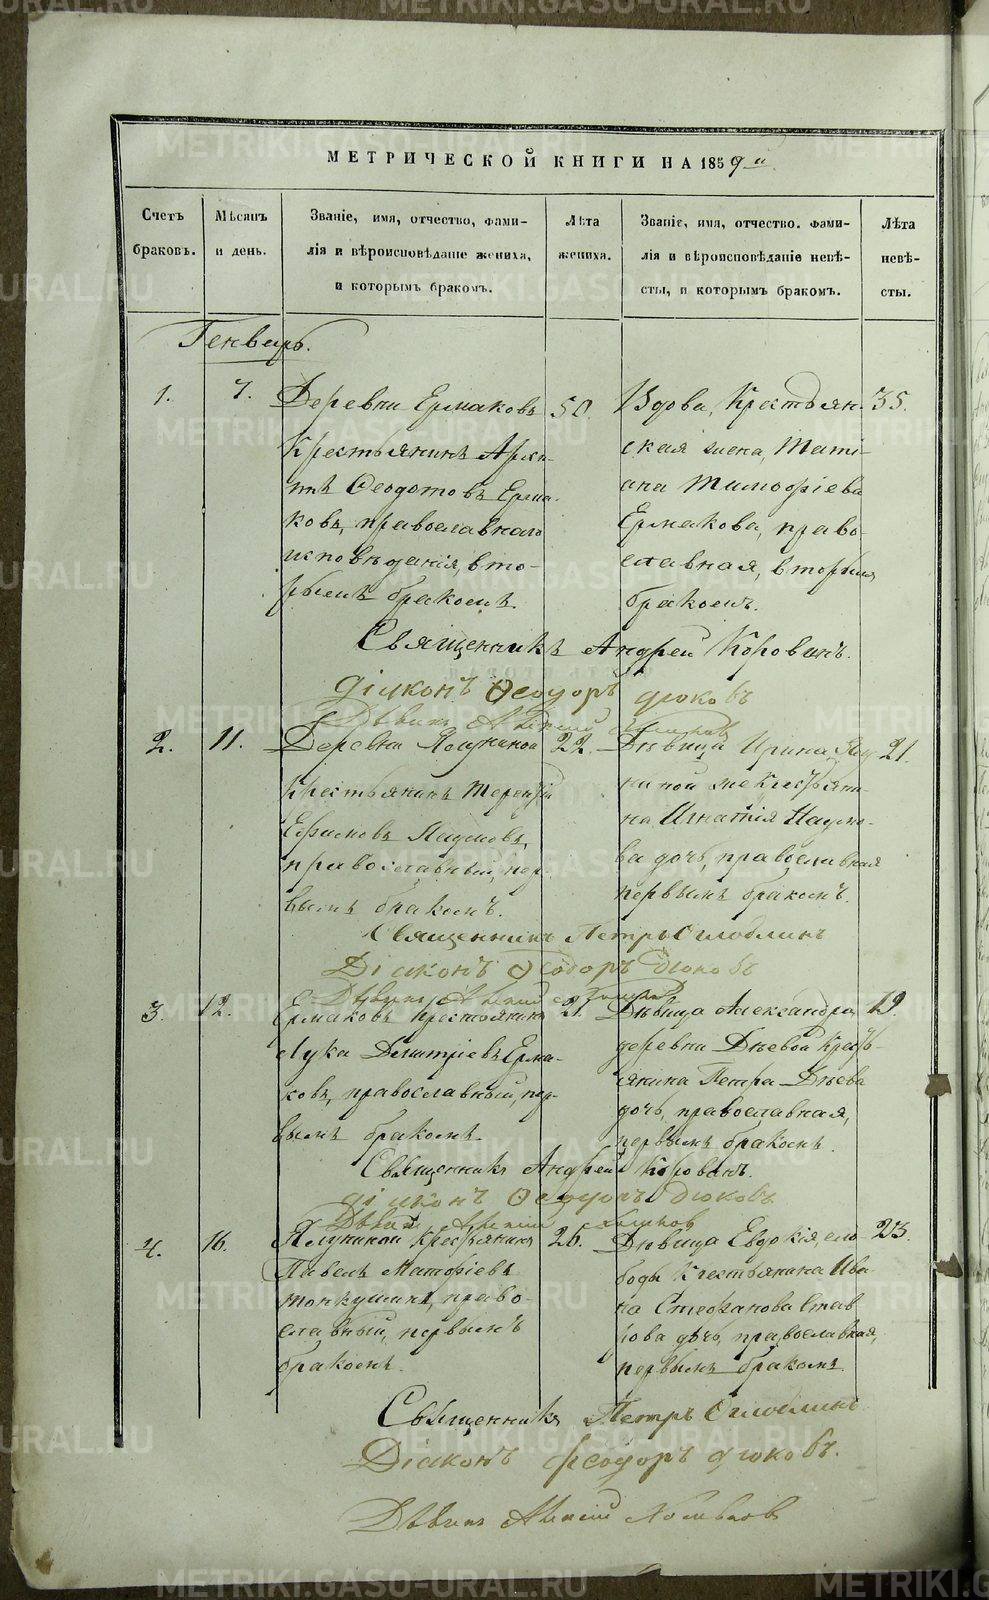 МЕТРИЧЕСКОЙ КНИГИ НА 1859 й
Счетъ браковъ.
Мѣсяцъ и день.
Званіе, имя, отчество, фами-
лія и вѣроисповѣданіе жениха,
и которымъ бракомъ.
Лѣта жениха.
Званіе, имя, отчество, фами-
лія и вѣроисповѣданіе невѣ-
сты, и которымъ бракомъ.
Лѣта невѣ-
сты.
Генварь.
1.
7.
Деревни Ермаковъ
Крестьянинъ Архи-
пъ Ѳеодотовъ Ерма-
ковъ, православнаго
исповѣданія, вто-
рымъ бракомъ.
50.
Вдова, Крестьян-
ская жена, Тати-
ана Тимофіева
Ермакова, право-
славная, вторымъ
бракомъ.
35.
Священникъ Андрей Коровинъ.
Діаконъ Ѳеодоръ Дюковъ
2.
11.
Деревни
Крестьянинъ Терентій
Ефимовъ Наумовъ,
православный, пер-
вымъ бракомъ.
22.
Дѣвица Ирина
ниной же Крестьяни-
на Игнатія Наумо-
ва дочь, православная
первымъ бракомъ.
21.
Священникъ Петръ Оглоблинъ
Діаконъ Ѳеодоръ Дюковъ
3.
12.
Ермаковъ Крестьянинъ
Лука Димитріевъ Ерма-
ковъ, православный, пер-
вымъ бракомъ
21.
Дѣвица Александра,
деревни Дѣевой Кресть-
янина Петра Дѣева
дочь, православная,
первымъ бракомъ.
19.
Священникъ Андрей Коровинъ.
Діаконъ Ѳеодоръ Дюковъ
4.
16.
Крестьянинъ
Павелъ Матфіевъ
право-
славный, первымъ
бракомъ.
26.
Дѣвица Евдокія, сло
боды Крестьянина Ива
на Стефанова
дочь, православная,
первымъ бракомъ
23.
Священникъ Петръ Оглоблинъ
Діаконъ Феодоръ Дюковъ.
METRIKI.GASO-URAL.RU